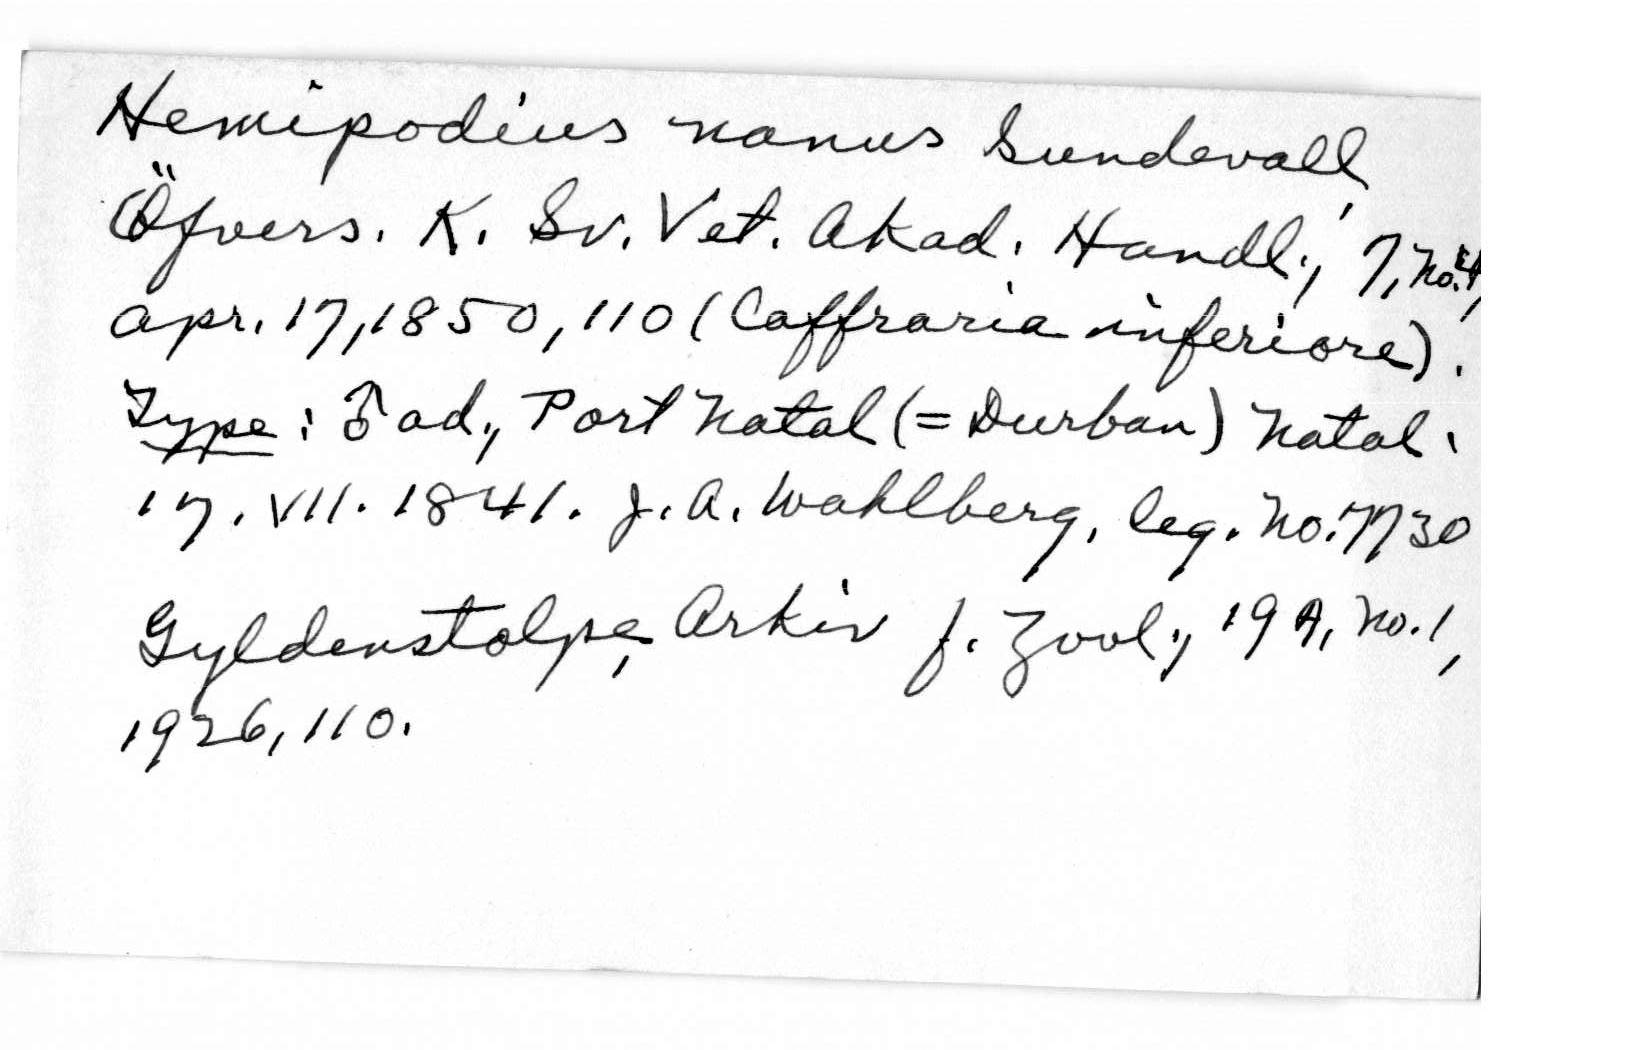 Hemipodius nanus Sundevall,
Öfvers. K. Sv. Vet. Akad. Handl., 7, No. 4,
Apr. 17, 1850, 110 (Caffraria inferiore).
Type: ♂ ad., Port Natal (= Durban) Natal.
17. VII. 1841. J. A. Wahlberg, leg. No. 7730
Gyldenstolpe, Arkiv f. Zool., 19 A, No. 1,
1926, 110.